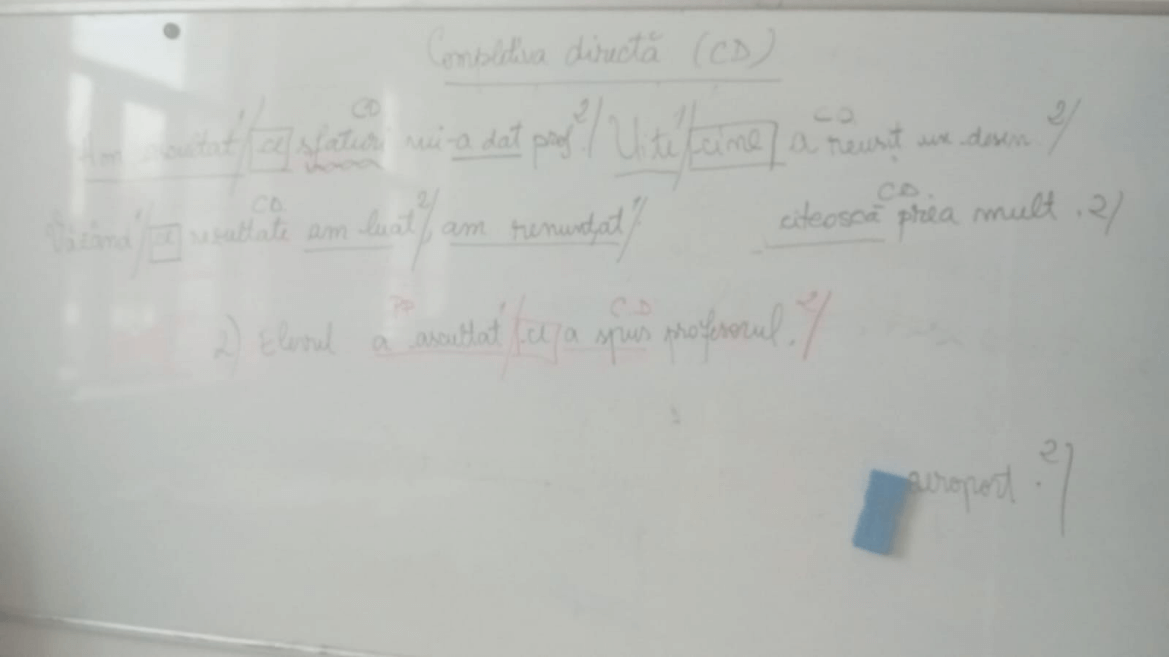 Completiva directă (CD)
CD CD
Am ascultat 1/ ce sfaturi mi-a dat prof. 2/ Uite 1/ cine a reușit un desen 2/
CD CD
Văzând 1/ ce rezultate am luat 2/, am renunțat 1/ citească prea mult. 2/
PP CD
2) Elevul a ascultat 1/ ce a spus profesorul. 2/
aeroport. 2/